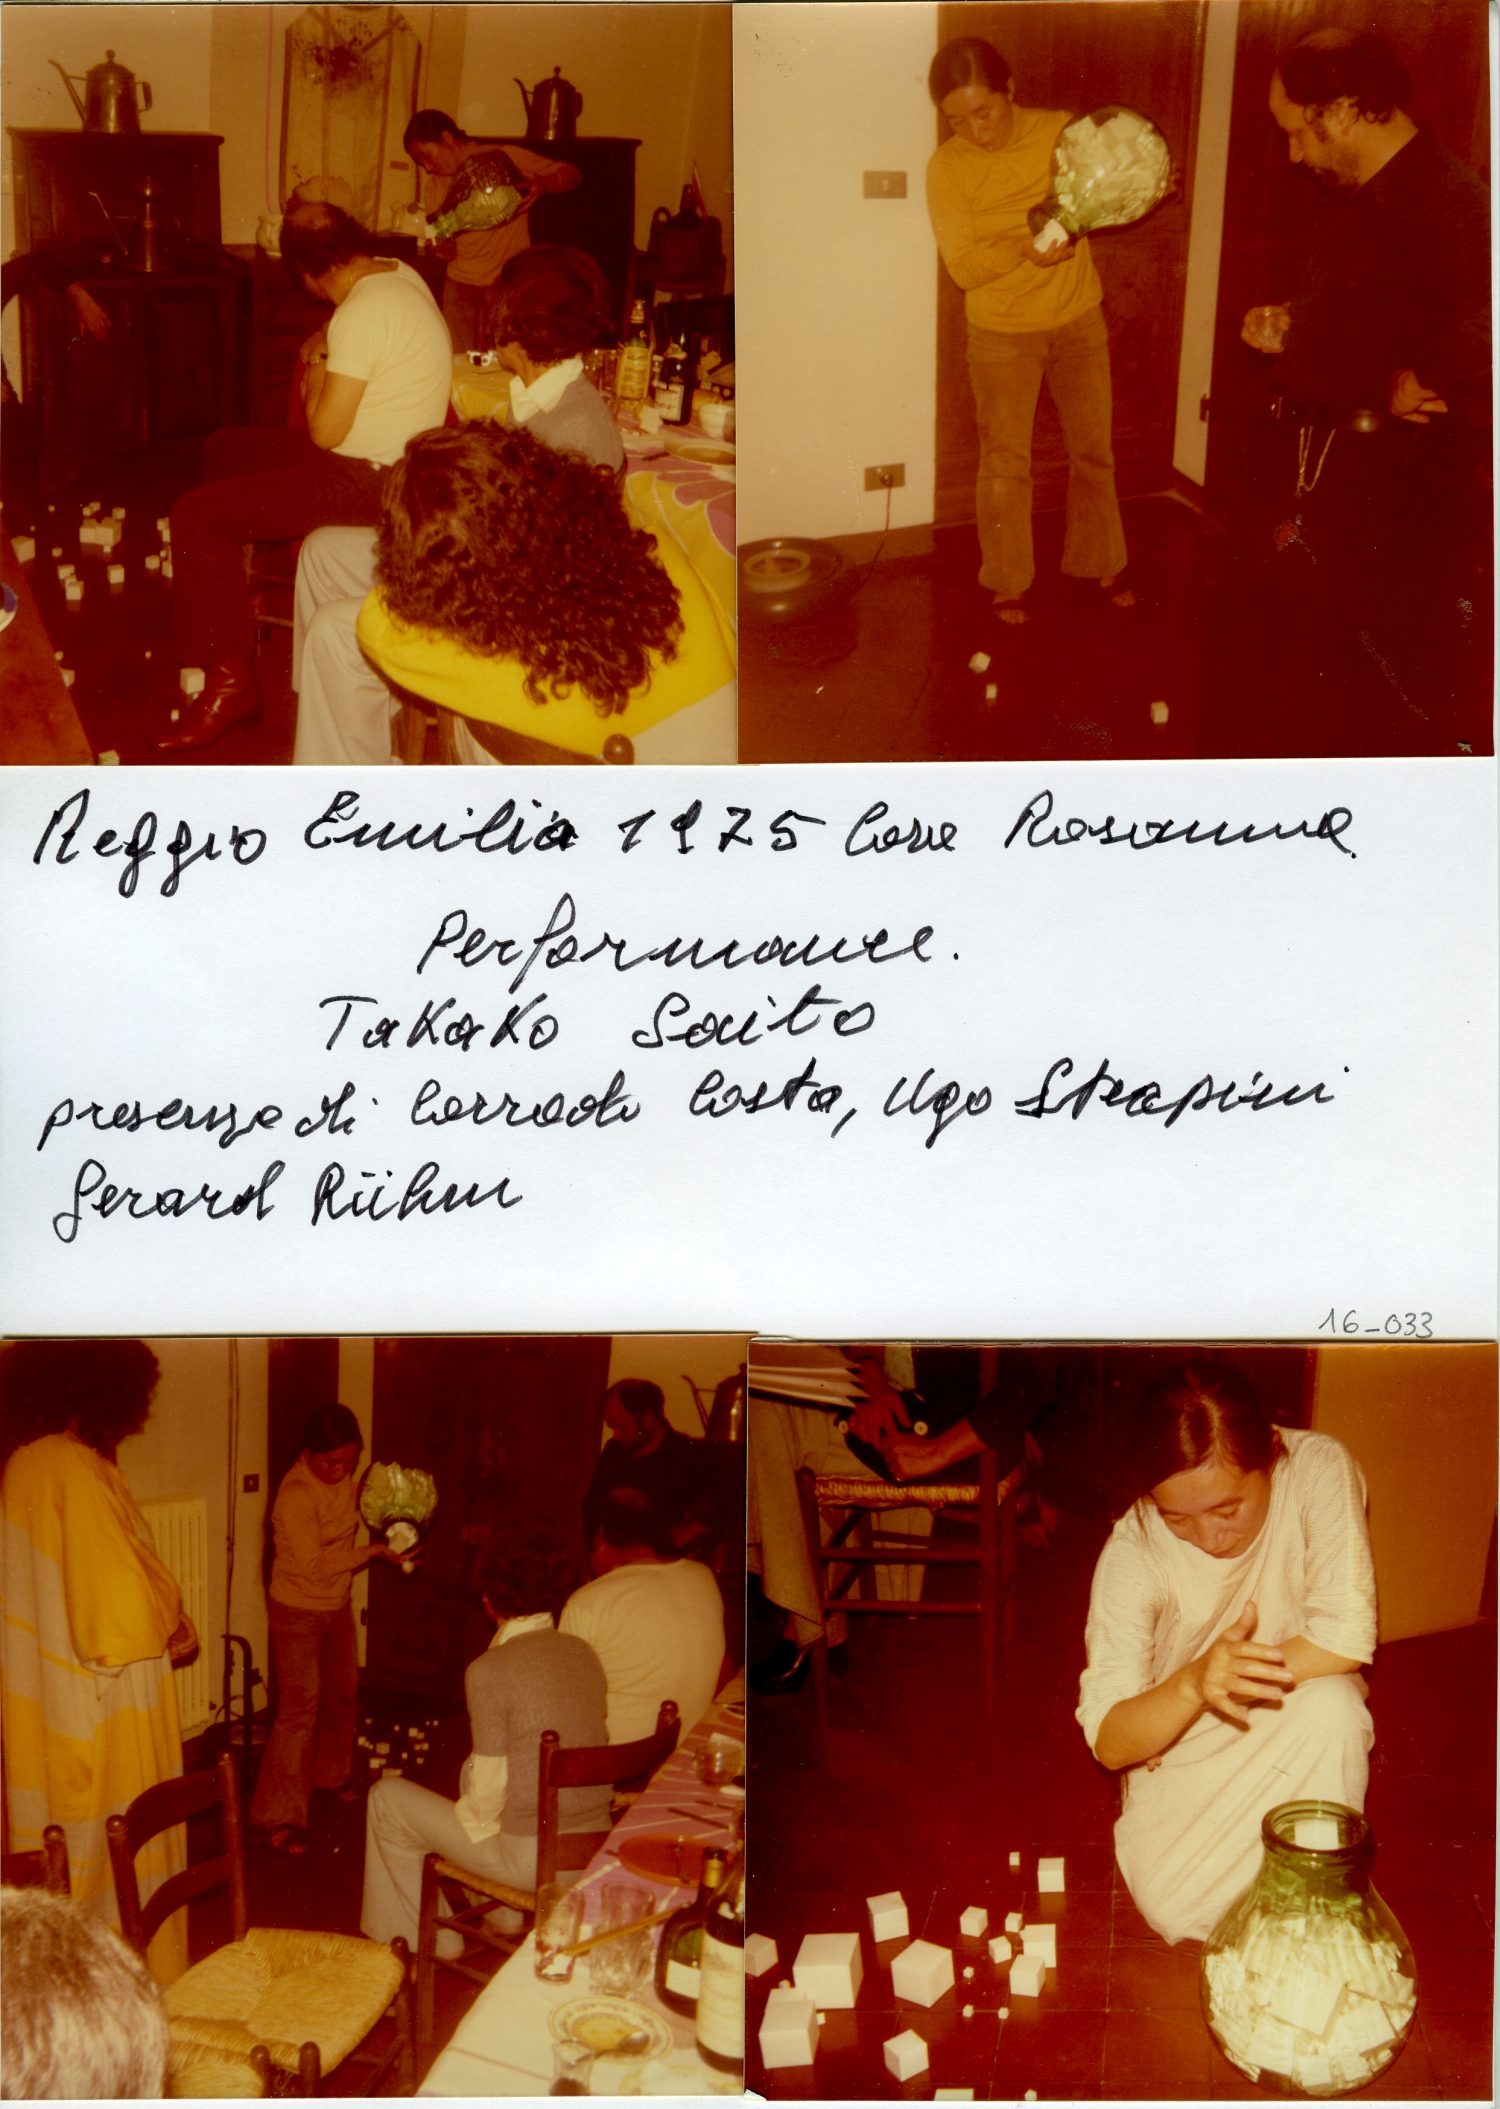 Reggio Emilia 1975 Casa Rosanna
Performance.
TaKaKo Saito
presenza di Corrado Costa, Ugo Sterpini
Gerard Rühm
16_033